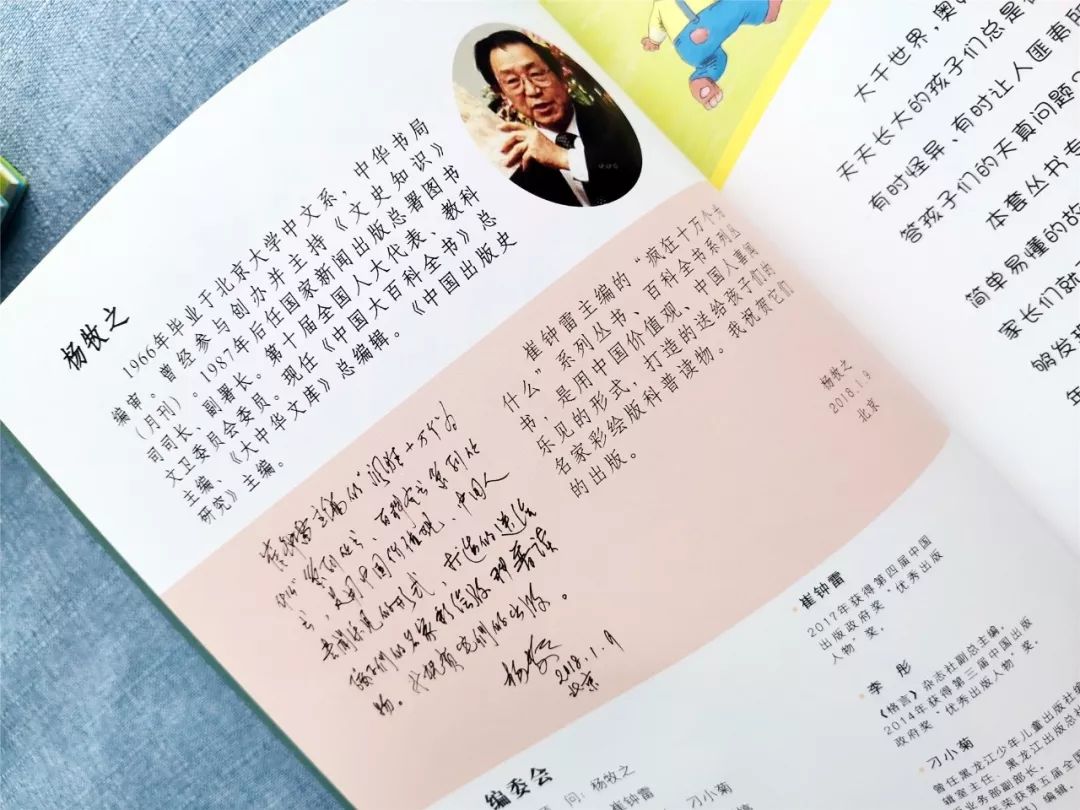 杨牧之
1966年毕业于北京大学中文系，中华书局
编审。曾经参与创办并主持《文史知识》
（月刊）。1987年后任国家新闻出版总署图书
司司长、副署长。第十届全国人大代表、教科
文卫委员会委员。现任《中国大百科全书》总
主编、《大中华文库》总编辑。《中国出版史
研究》主编。
崔钟雷主编的“疯狂十万个为
什么”系列丛书、百科全书系列丛
书，是用中国价值观、中国人喜闻
乐见的形式，打造的送给孩子们的
名家彩绘版科普读物。我祝贺它们
的出版。
杨牧之
2018.1.9
北京
崔钟雷主编的“疯狂十万个为
什么”系列丛书、百科全书系列丛
书，是用中国价值观、中国人
喜闻乐见的形式，打造的送给
孩子们的名家彩绘版科普读
物。我祝贺它们的出版。
杨牧之
2018.1.9
北京
编委会
问：杨牧之
崔钟雷
刁小菊
崔钟雷
2017年获得第四届中国
出版政府奖“优秀出版
人物”奖。
李 彤
《格言》杂志社副总主编。
2014年获得第三届中国出版
政府奖“优秀出版人物”奖。
刁小菊
曾任黑龙江少年儿童出版社编
辑室主任、黑龙江出版总社
业务部副部长。
获第五届全国
编辑
大千世界，奥
天天长大的孩子们总是
有时怪异、有时让人匪夷所
答孩子们的天真问题？
本套丛书专
简单易懂的故
家长们就
够发现
年